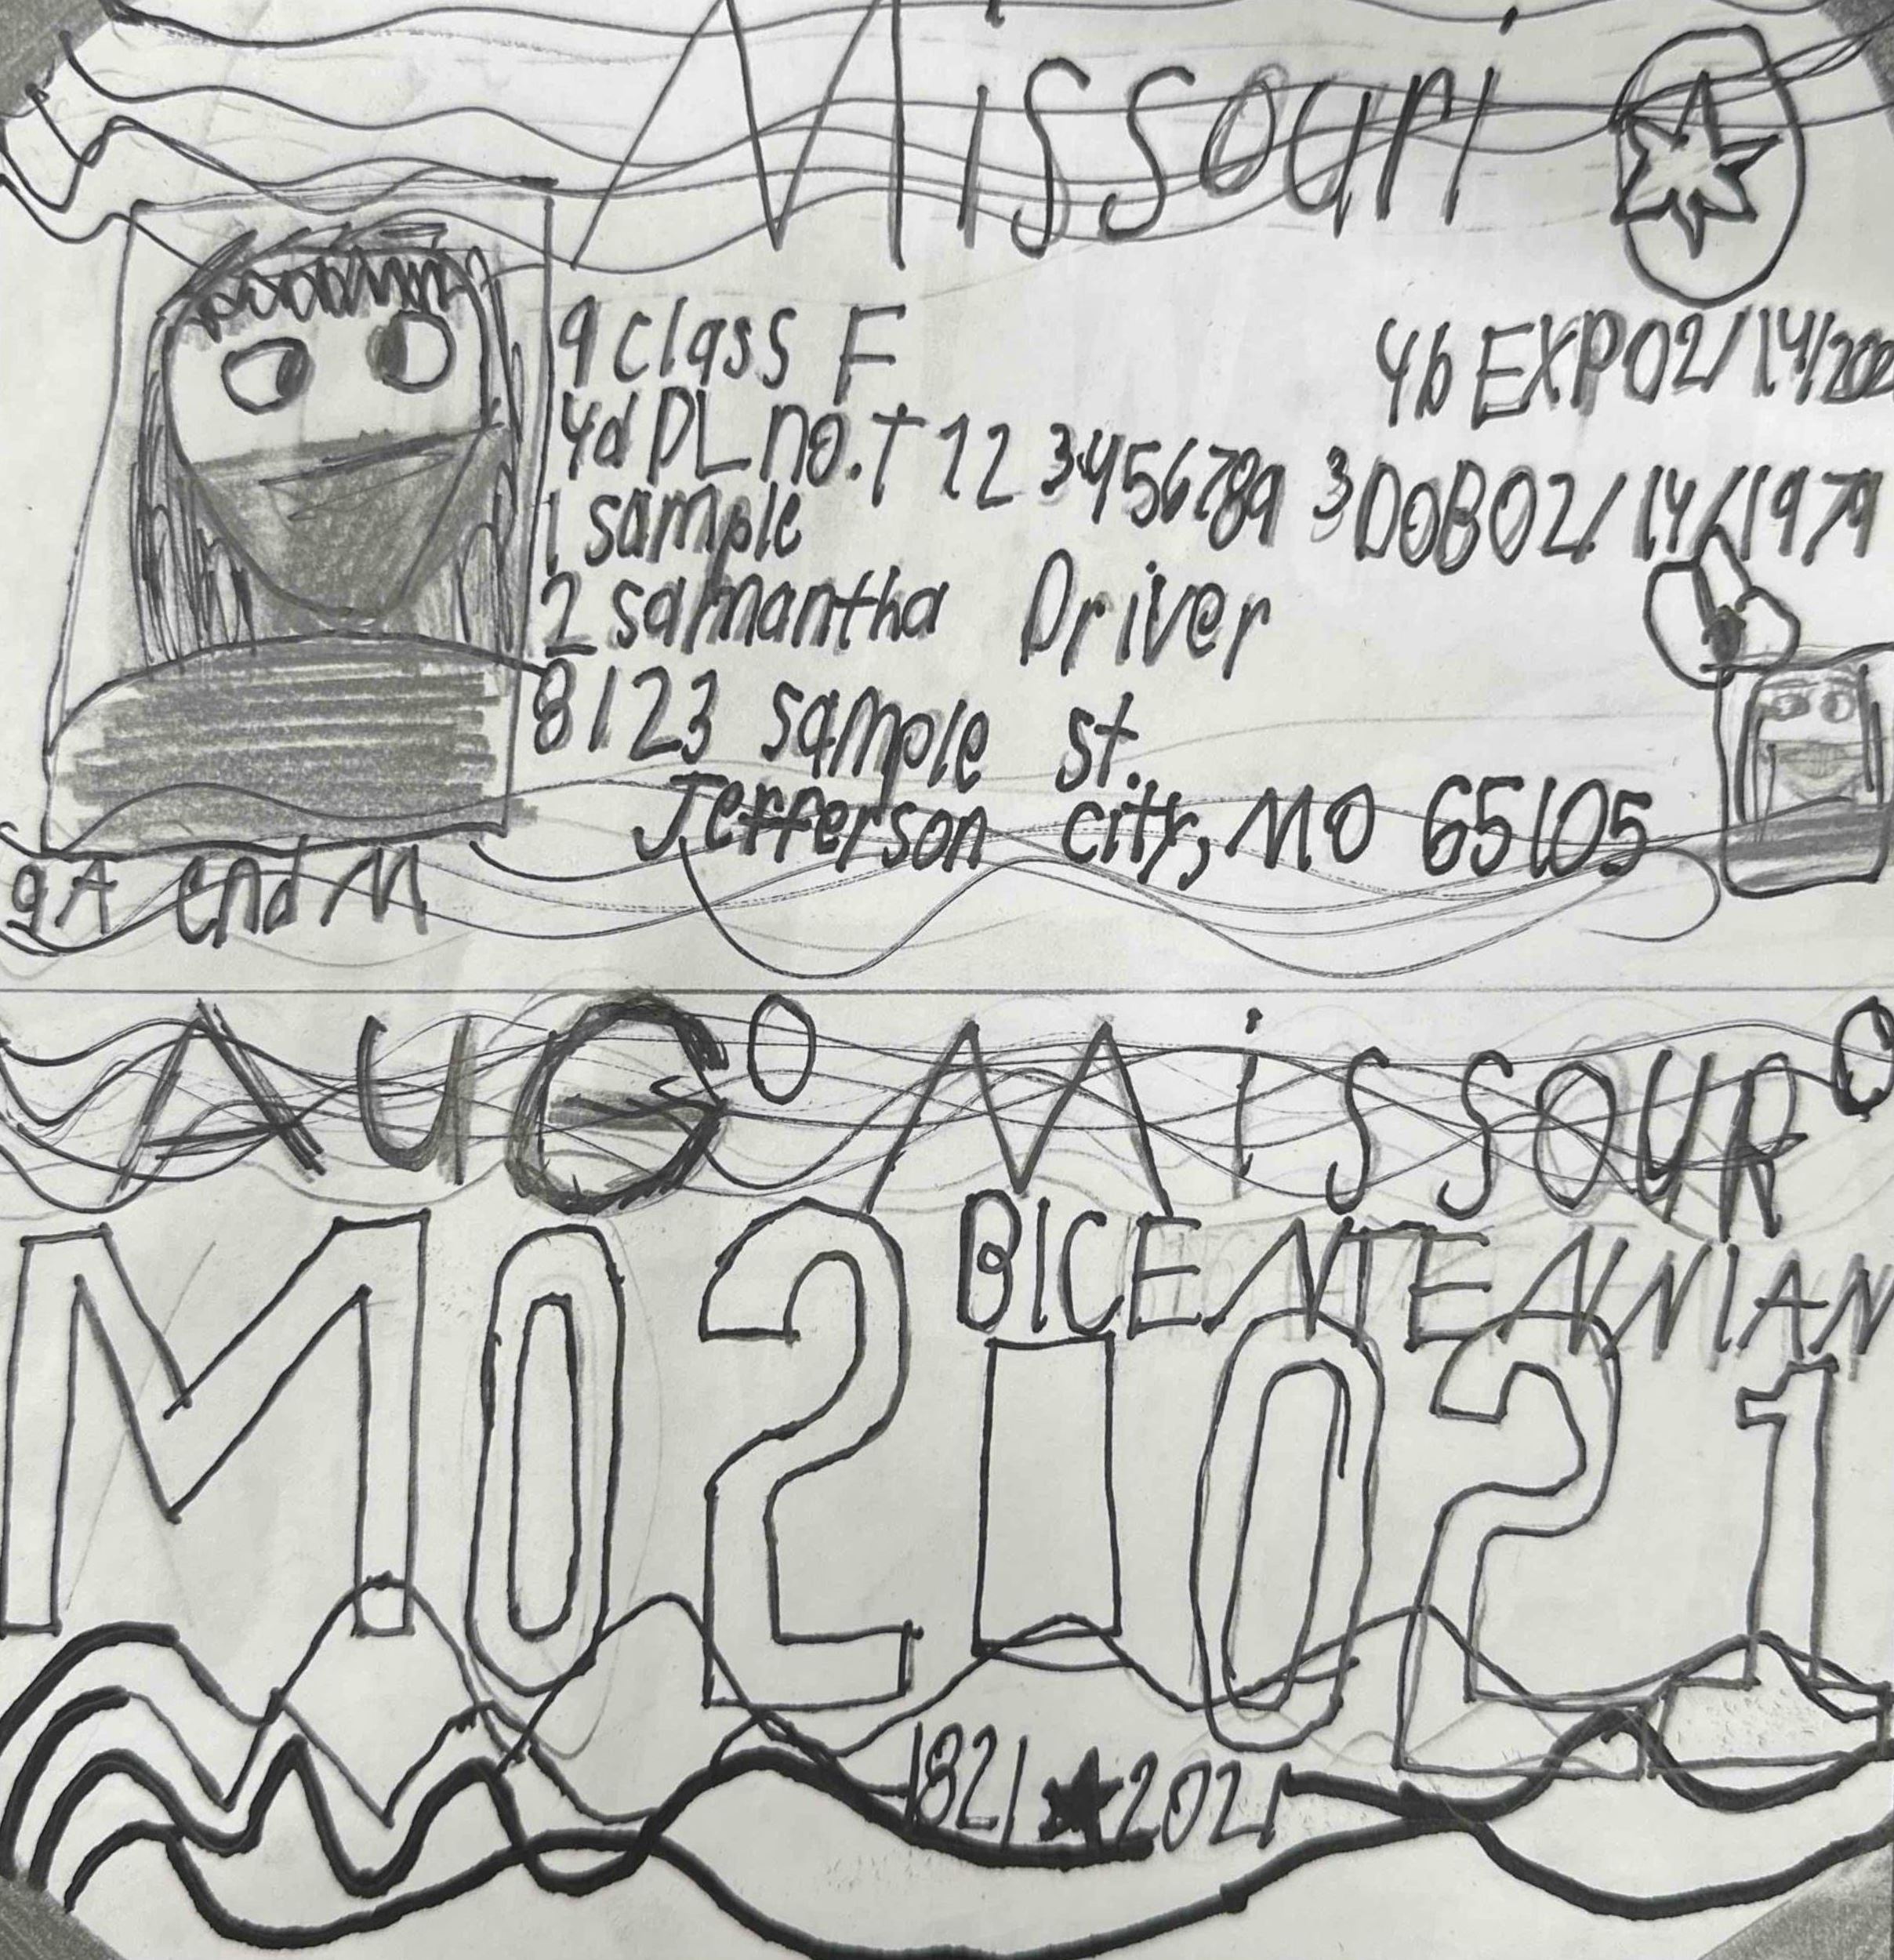 Missouri
9 class F
4b EXP 02/14/202
4d DL no. T 123456789
3 DOB 02/14/1979
1 sample
2 samantha Driver
8 123 sample st.
Jefferson city, MO 65105
9A end M
AUG MiSSOUR
BICENTENNIAN
M02 1021
1821 ★ 2021